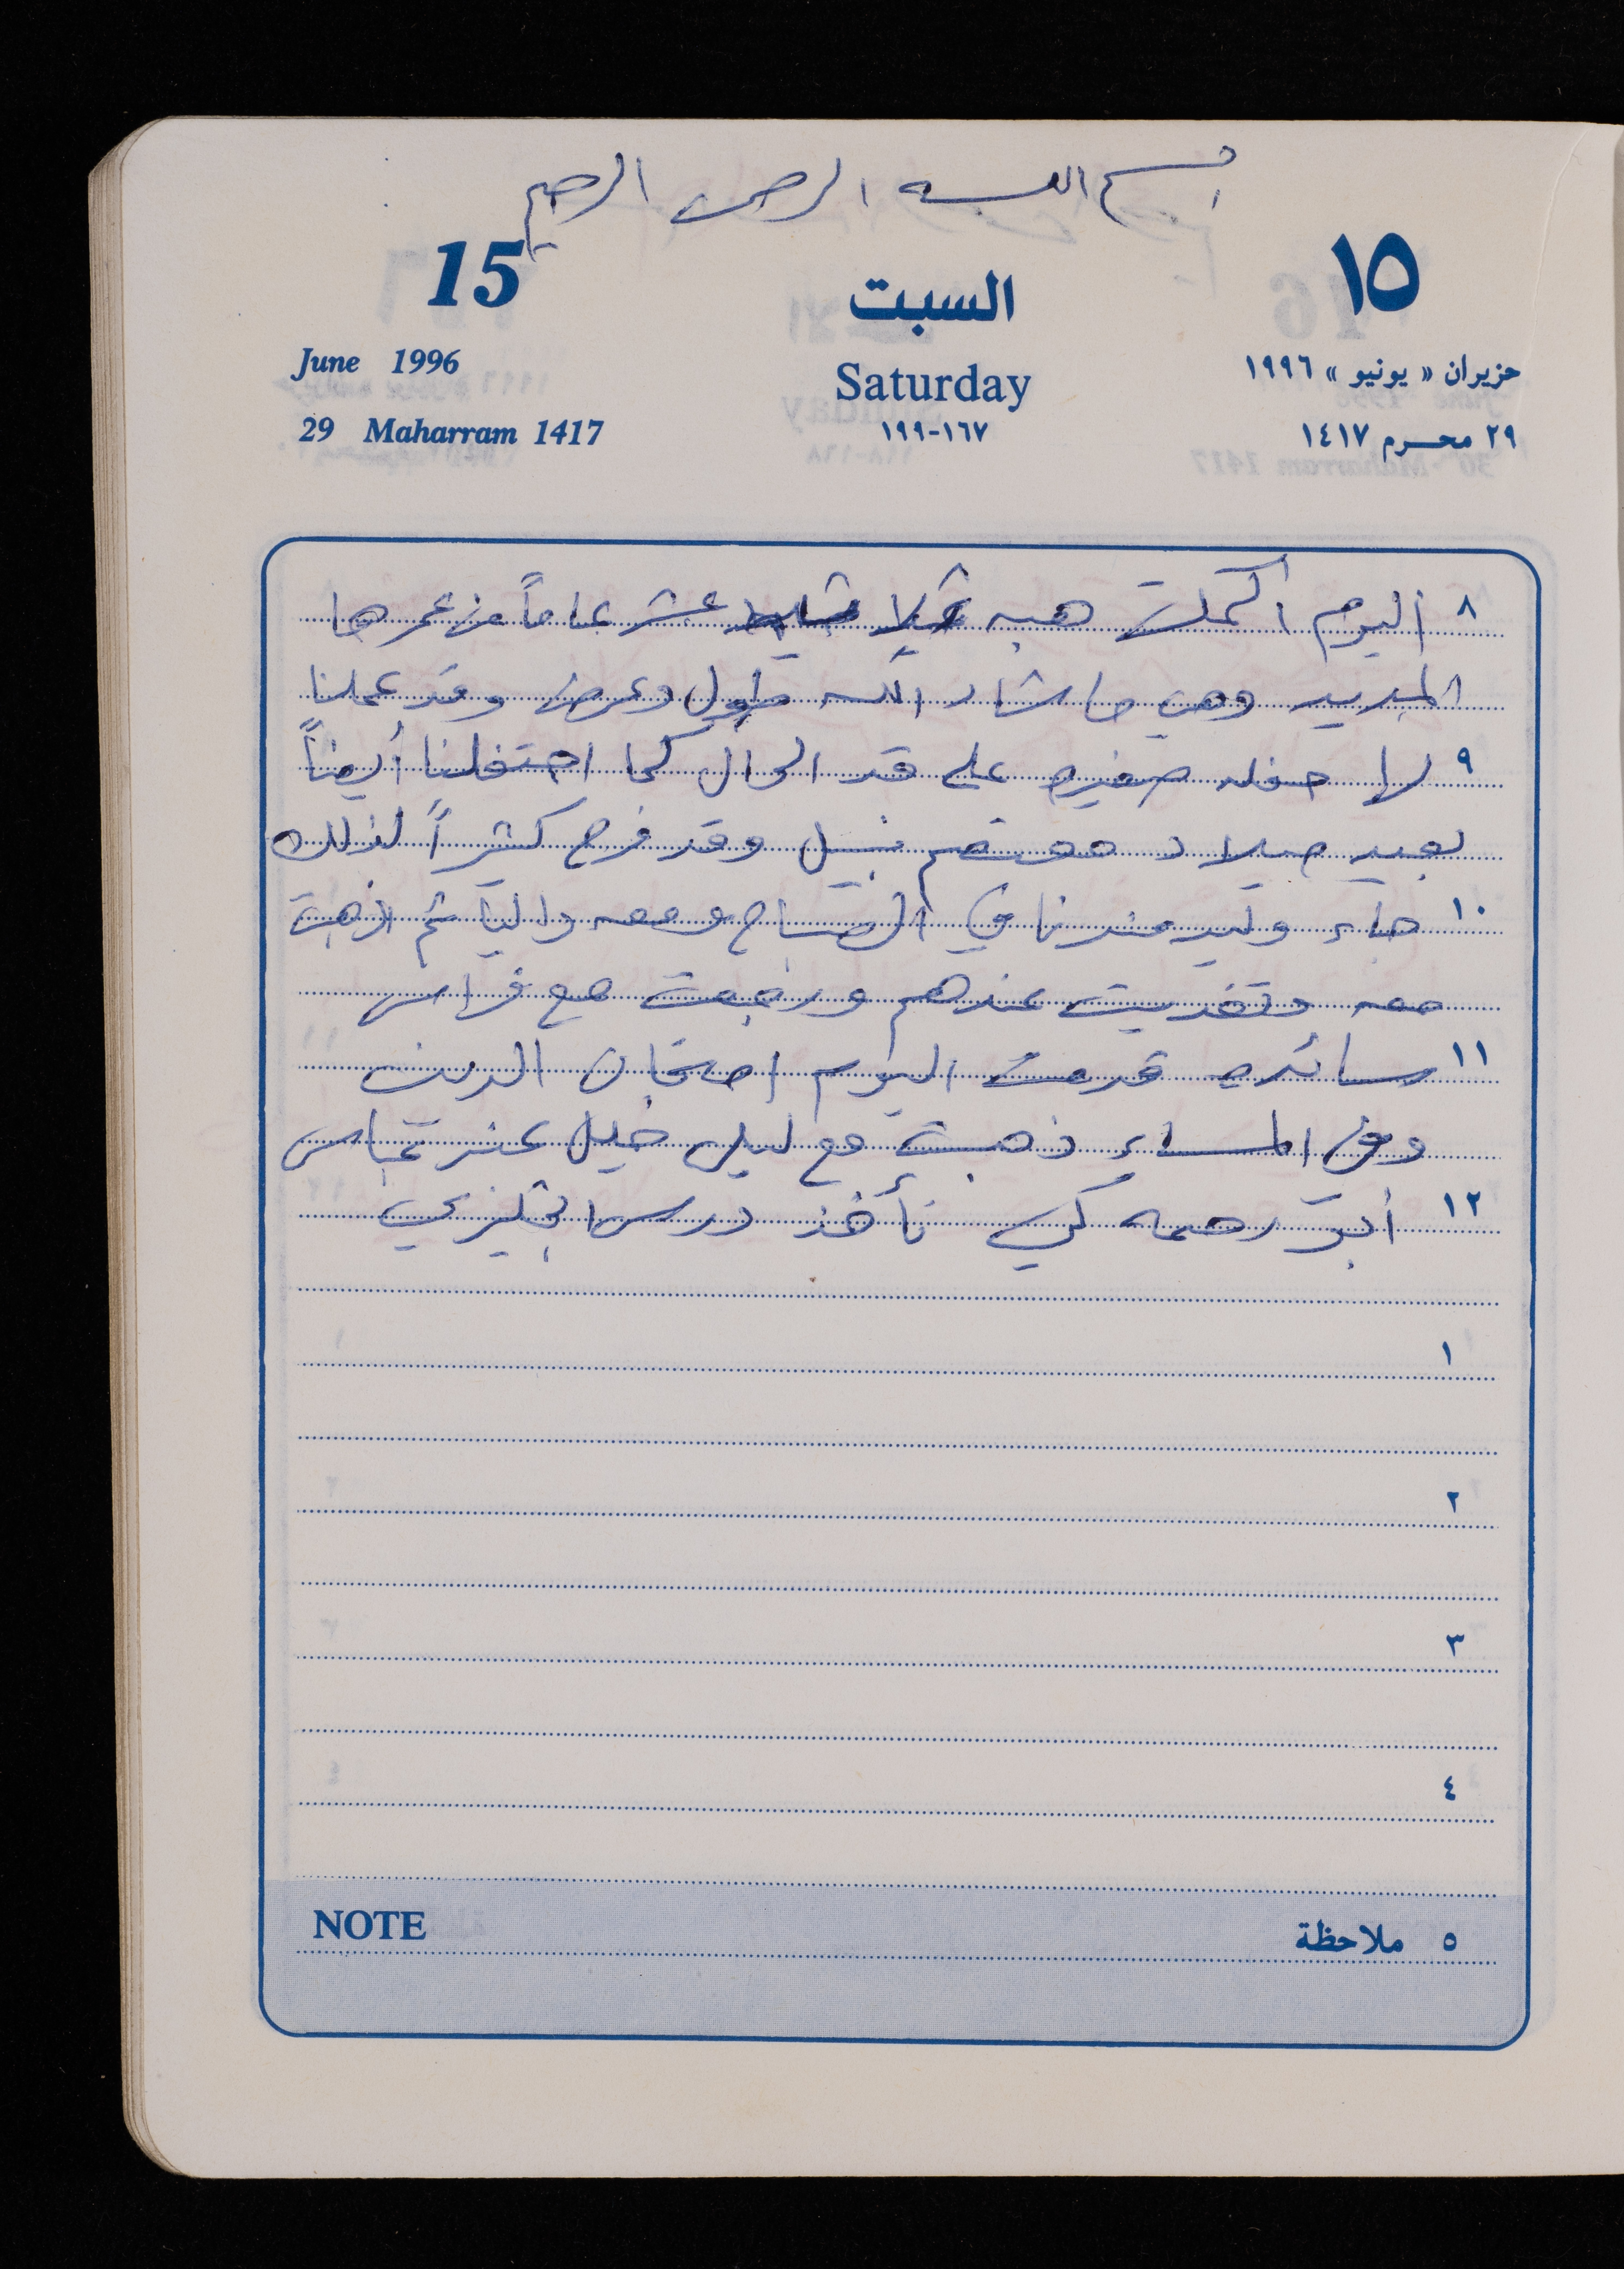 بسم الله الرحمن الرحيم
15 السبت ١٥
June 1996 Saturday حزيران « يونيو » ١٩٩٦
29 Maharram 1417 ١٦٧-١٩٩ ٢٩ محرم ١٤١٧
٨ اليوم أكملت هبه عشر عاماً من عمرها
المديد وهي ما شاء الله طول وعرض وقد عملنا
٩ لها حفله صغيره على قد الحال كما احتفلنا أيضاً
بعيد ميلاد معتصم نبيل وقد فرح كثيراً لذلك
١٠ جاء وليد عندنا في الصباح ومعه داليا ثم ذهبت
معه وتغديت عندهم ورجعت مع فراس
١١ سائده قدمت اليوم امتحان الدين
وفي المساء ذهبت مع ليلى خليل عند
١٢ أبو رحمه كي تأخذ درس انجليزي
١
٢
٣
٤
NOTE ٥ ملاحظة